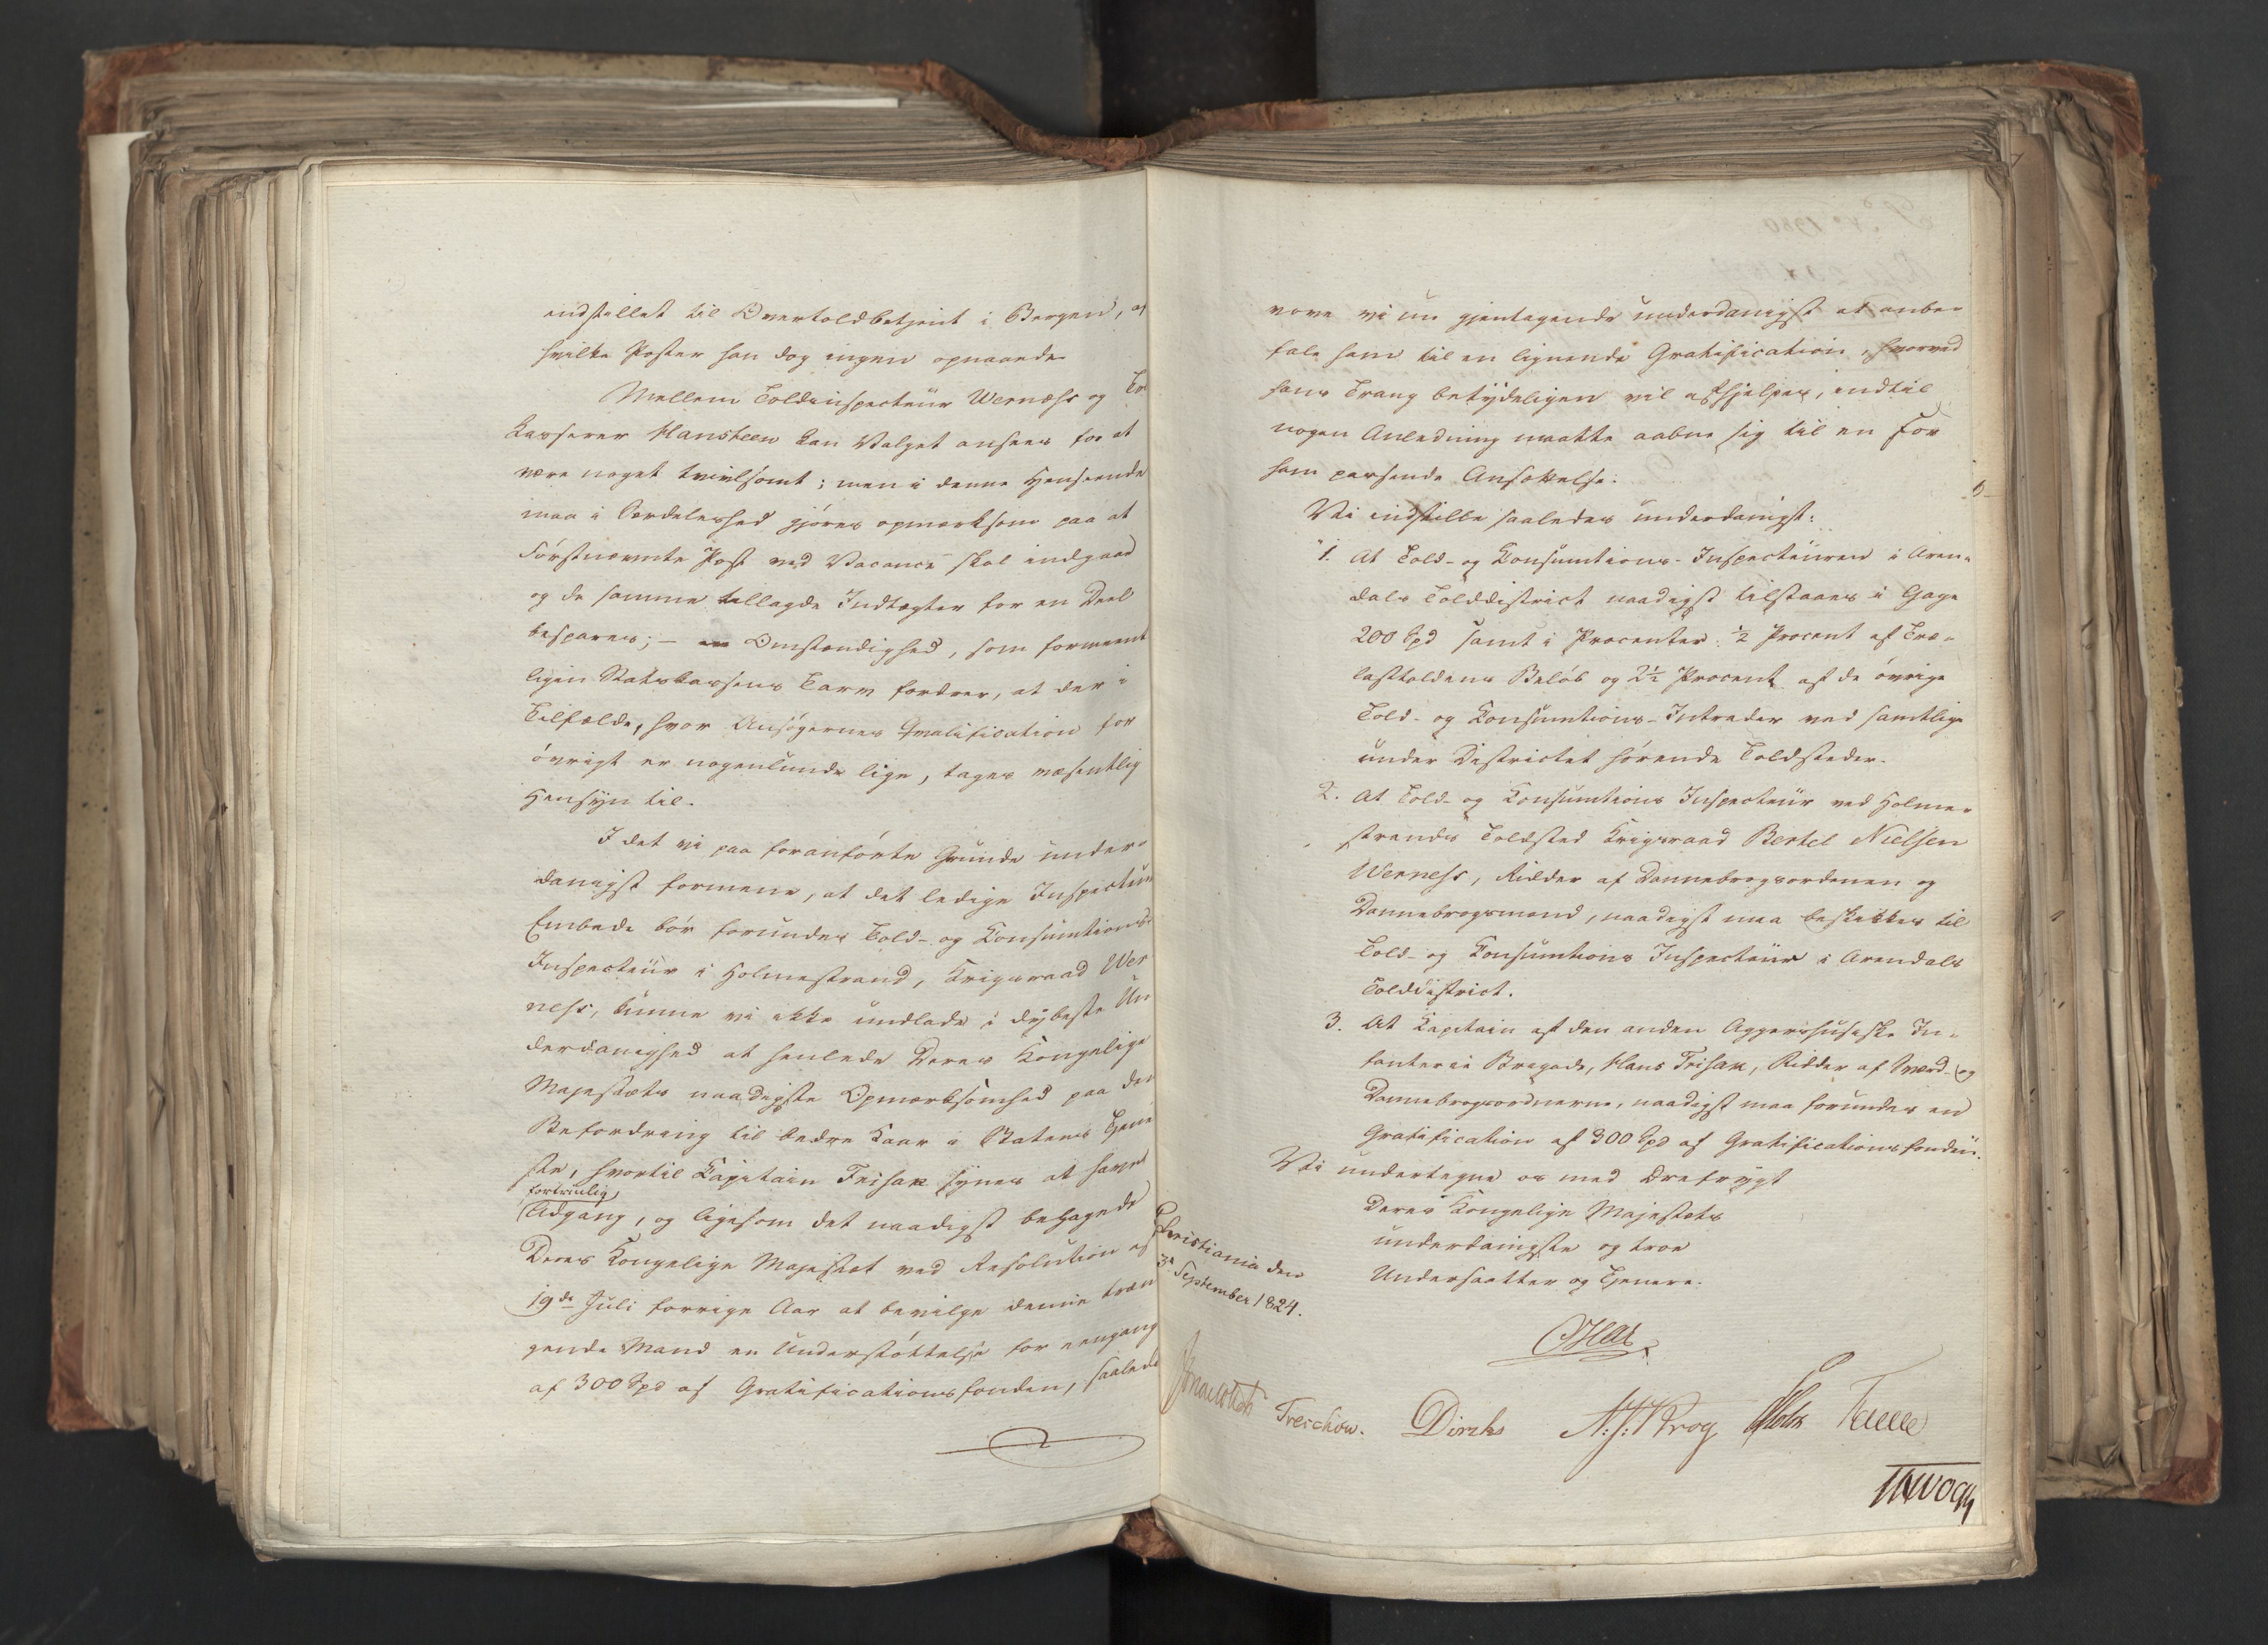 indstillet til Overtoldbetjent i Bergen, af
hvilke Poster han dog ingen opnaaede
Mellem Toldinspecteur Werness og Told
Kasserer Hansteen kan Valget ansees for at
være noget tvivlsomt; men i denne Henseende
maa i Særdeleshed gjøres opmærksom paa at
Förstnævnte Post ved Vacance skal indgaae
og de samme tillagde Indtægter for en Deel
bespares; – en Omstændighed, som formeent
ligen Statskassens Tarv fordrer, at der i
Tilfælde, hvor Ansøgernes Qvalification for
övrigt er nogenlunde lige, tages væsentlig
Hensyn til.
I det vi paa foranförte Grunde under-
danigst formene, at det ledige Inspecteur
Embede bör forundes Told- og Konsumtions-
Inspecteur i Holmestrand, Krigsraad Wer
ness, kunne vi ikke undlade i dybeste Un
derdanighed at henlede Deres Kongelige
Majestæts naadigste Opmærksomhed paa den
Befordring til bedre Kaar i Statens Tjene
ste, hvortil Kapitain Frisak synes at have
fortrinlig
Adgang, og ligesom det naadigst behagede
Deres Kongelige Majestæt ved Resolution af
19de Juli forrige Aar at bevilge denne træn
gende Mand en Understöttelse for eengang
af 300 Spd af Gratificationsfonden, saalede
vove vi nu gjentagende underdanigst at anbe-
fale ham til en lignende Gratification, hvorved
hans Trang betydeligen vil afhjelpes, indtil
nogen Anledning maatte aabne sig til en for
ham passende Ansættelse.
Vi indstille saaledes underdanigst:
1. At Told- og Konsumtions-Inspecteuren i Aren-
dals Tolddistrict naadigst tilstaaes i Gage
200 Spd samt i Procenter: ½ Procent af Træ-
lasttoldens Belöb og 2½ Procent af de övrige
Told- og Konsumtions-Intrader ved samtlige
under Districtet hörende Toldsteder.
2. At Told- og Konsumtions Inspecteur ved Holme-
strands Toldsted Krigsraad Bertel Nielsen
Werness, Ridder af Dannebrogsordenen og
Dannebrogsmand, naadigst maa beskikkes til
Told- og Konsumtions Inspecteur i Arendals
Tolddistrict.
3. At Kapitain af den anden Aggershusiske In-
fanterie Brigade, Hans Frisak, Ridder af Sværd- og
Dannebrogsordnerne, naadigst maa forundes en
Gratification af 300 Spd af Gratificationsfonden.
Vi undertegne os med Ærefrygt
Deres Kongelige Majestæts
underdanigste og troe
Undersaatter og Tjenere.
Christiania den
3e September 1824.
Oscar
Treschow. Diriks A: J: Krog